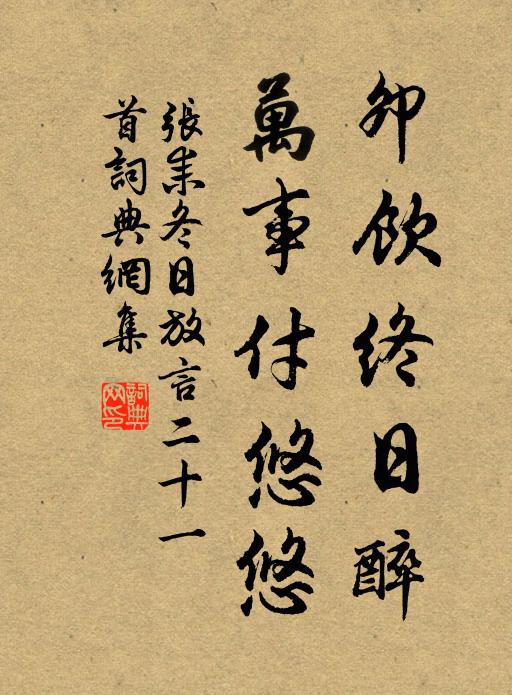 卯飲終日醉
萬事付悠悠
張耒冬日放言二十一
首詞典網集
詞典網印